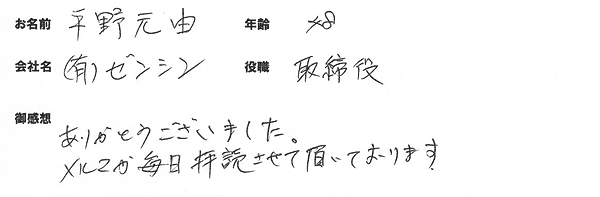 お名前 平野元由 年齢 48
会社名 (有)ゼンシン 役職 取締役
御感想
ありがとうございました。
メルマガ毎日拝読させて頂いております